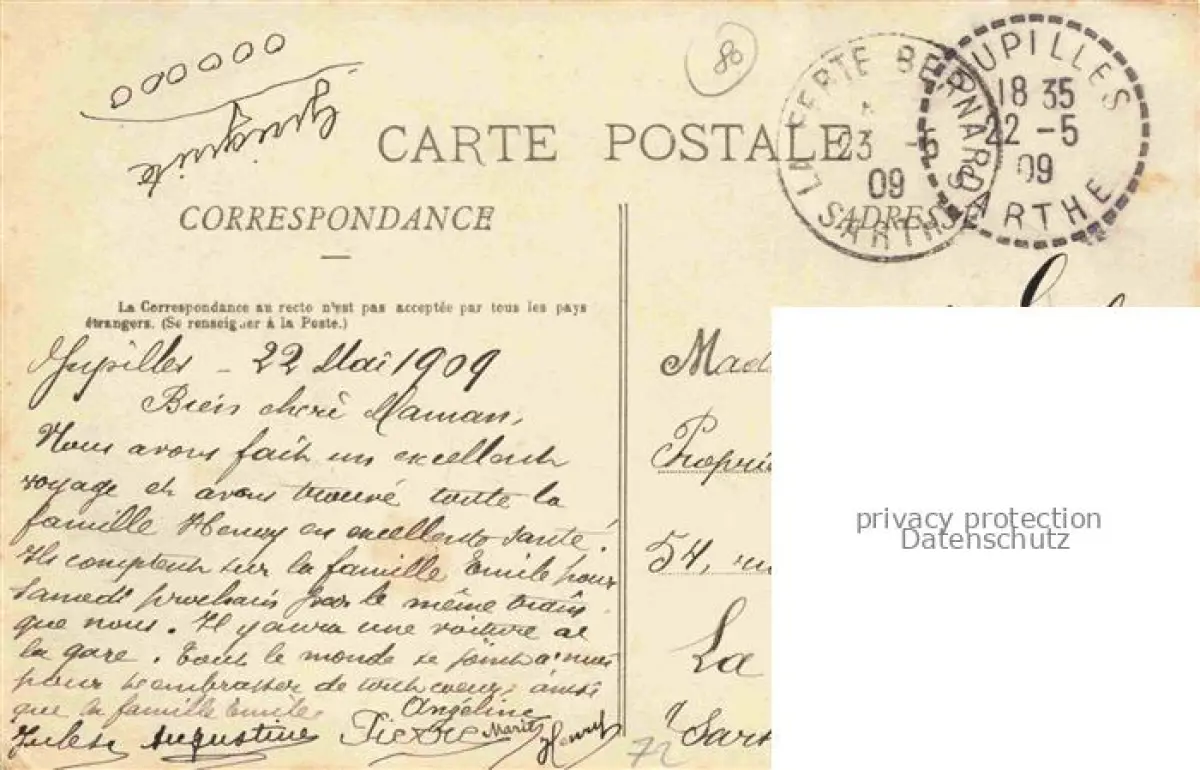 86
LA FERTE BERNARD
23 -5
09
SARTHE
JUPILLES
18 35
22 -5
09
SARTHE
CARTE POSTALE
CORRESPONDANCE
ADRESSE
La Correspondance au recto n'est pas acceptée par tous les pays
étrangers. (Se renseigner à la Poste.)
Jupilles - 22 Mai 1909
Bien cherè Maman,
Nous avons fait un excellent
voyage et avons trouvé toute la
famille Henry en excellente santé.
Ils comptent sur la famille Emile pour
Samedi prochain par le même train
que nous. Il y aura une voiture a
la gare. Tout le monde se joint a nous
pour t'embrasser de tout coeur ainsi
que la famille Emile.
Angéline
Jules Augustine Pierre Marie Henry
Mad
Proprié
54, ru
La
Sart
72
privacy protection
Datenschutz